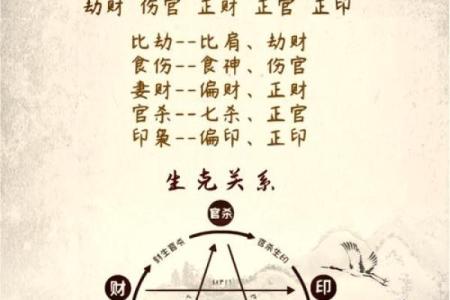 劫财 伤官 正财 正官 正印
比劫--比肩、劫财
食伤--食神、伤官
妻财--偏财、正财
官杀--七杀、正官
印枭--偏印、正印
生克关系
官杀
财生官杀
官杀生印
财
印